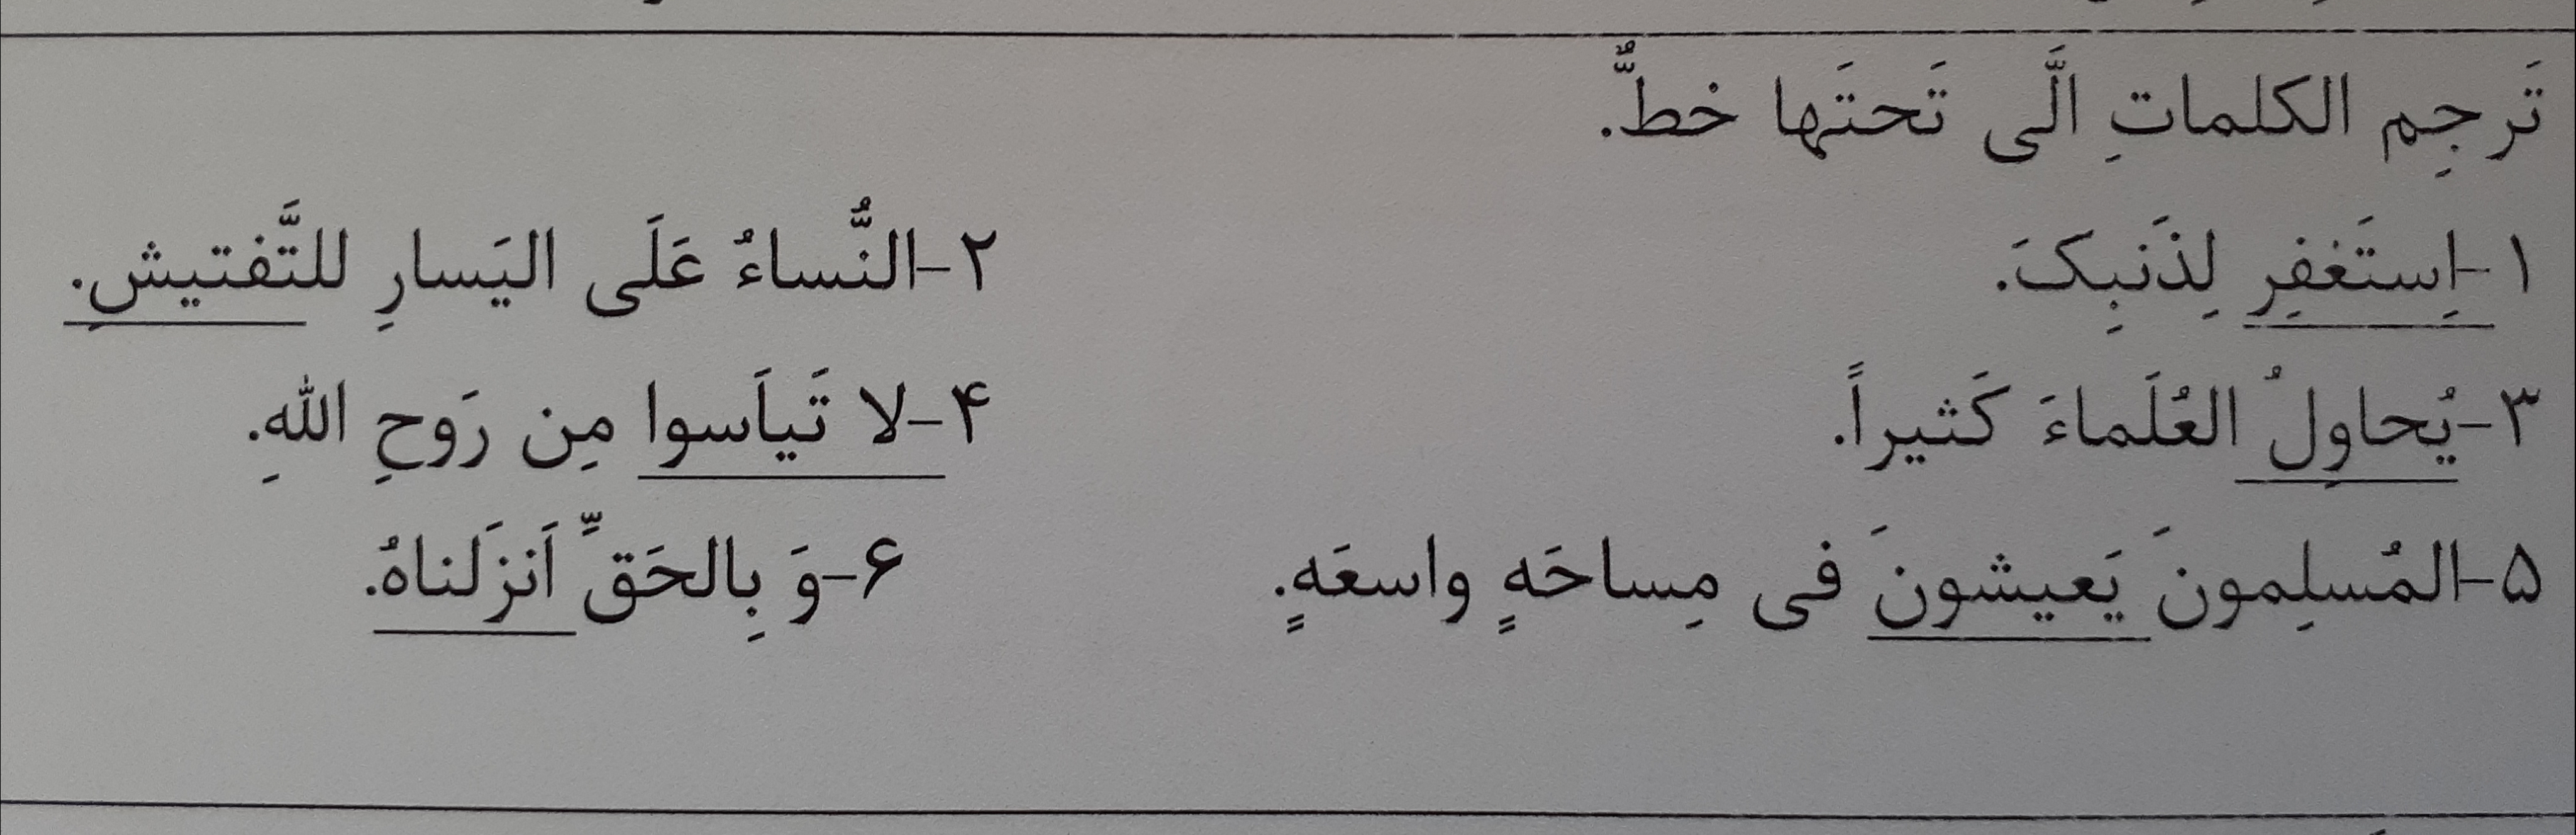 تَرجِم الکلماتِ الَّی تَحتَها خطٌّ.
۱-اِستَغفِر لِذَنبِکَ. ۲-النُّساءُ عَلَی الیَسارِ للتَّفتیشِ.
۳-یُحاوِلُ العُلَماءَ کَثیراً. ۴-لا تَیاَسوا مِن رَوحِ اللهِ.
۵-المُسلِمونَ یَعیشونَ فی مِساحَهٍ واسعَهٍ. ۶-وَ بِالحَقِّ اَنزَلناهُ.